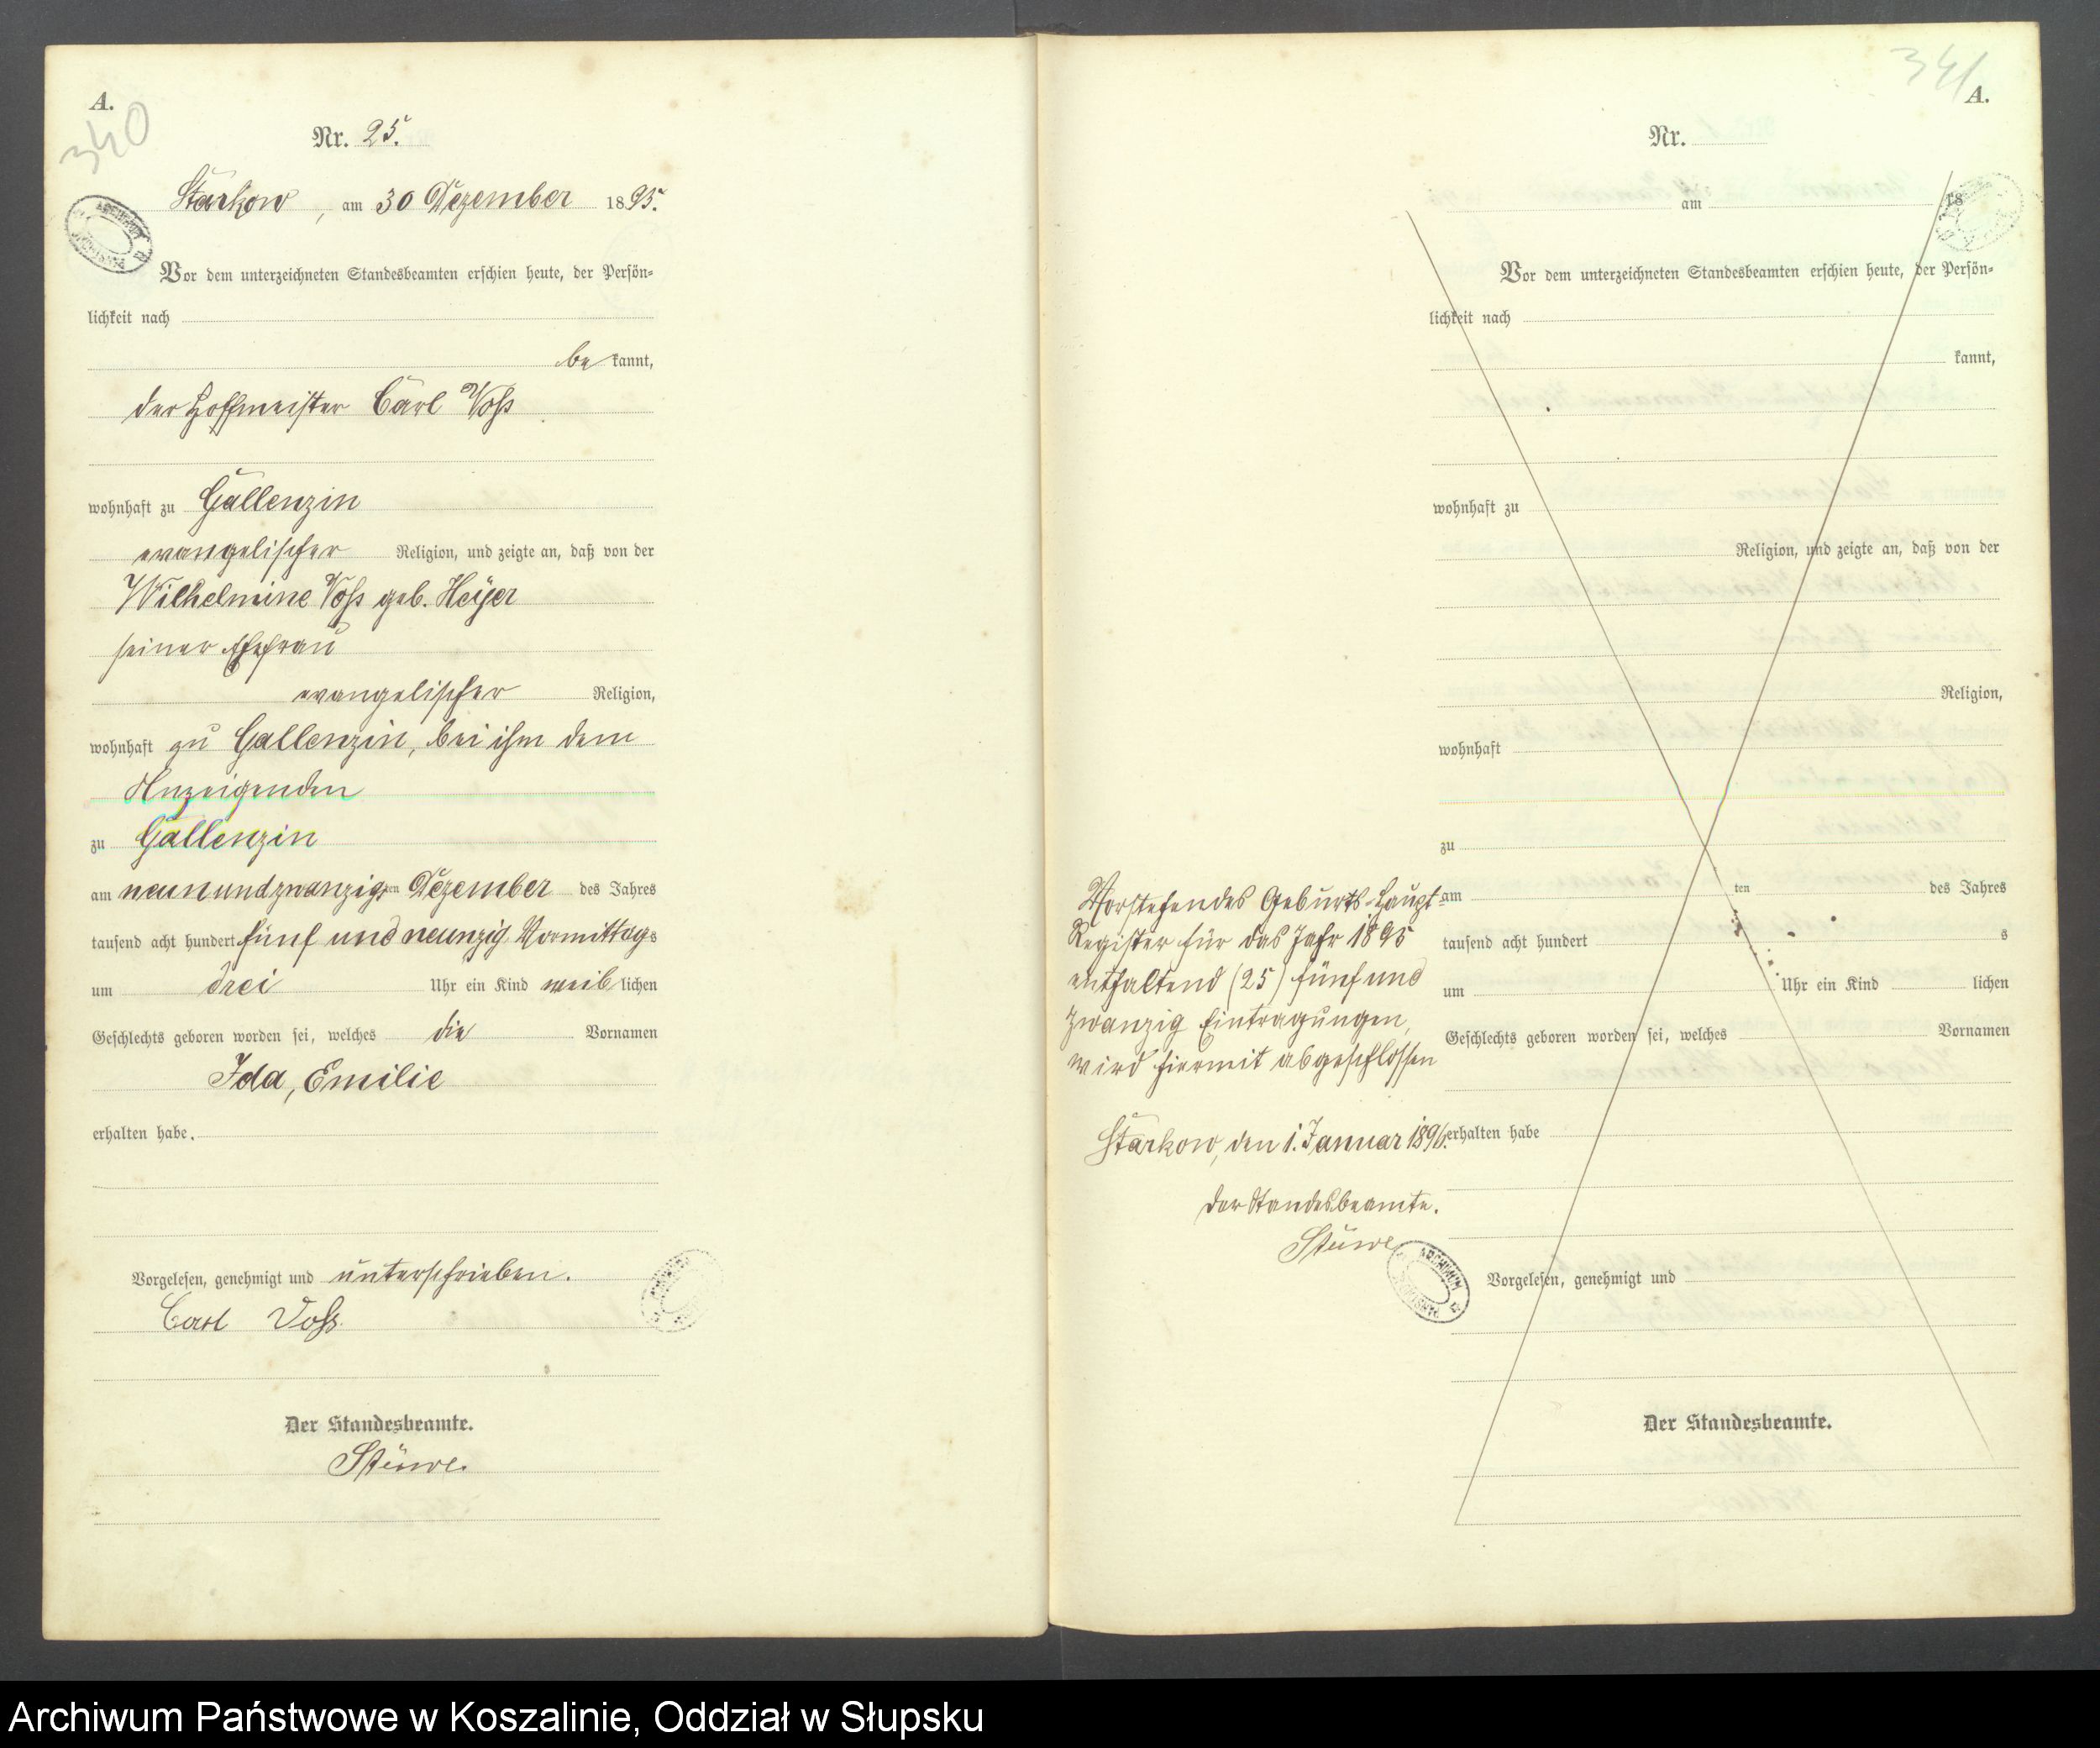 A.
340
Nr. 25.
Starkow, am 30 Dezember 1895.
Vor dem unterzeichneten Standesbeamten erschien heute, der Persön-
lichkeit nach
be kannt,
der Hoffmeister Carl Voß
wohnhaft zu Gallenzin
evangelischer Religion, und zeigte an, daß von der
Wilhelmine Voß geb. Heyer
seiner Ehefrau
evangelischer Religion,
wohnhaft zu Gallenzin, bei ihm dem
Anzeigenden
zu Gallenzin
am neunundzwanzigsten Dezember des Jahres
tausend acht hundert fünf und neunzig Vormittags
um drei Uhr ein Kind weiblichen
Geschlechts geboren worden sei, welches die Vornamen
Ida, Emilie
erhalten habe.
Vorgelesen, genehmigt und unterschrieben.
Carl Voß
Der Standesbeamte.
Stüwe.
341
A.
Nr.
am 18
Vor dem unterzeichneten Standesbeamten erschien heute, der Persön-
lichkeit nach
kannt,
wohnhaft zu
Religion, und zeigte an, daß von der
Religion,
wohnhaft
zu
am ten des Jahres
tausend acht hundert s
um Uhr ein Kind lichen
Geschlechts geboren worden sei, welches Vornamen
erhalten habe
Vorgelesen, genehmigt und
Der Standesbeamte.
Vorstehendes Geburts-Haupt-
Register für das Jahr 1895
enthaltend (25) fünf und
zwanzig Eintragungen,
wird hiermit abgeschlossen
Starkow, den 1. Januar 1896.
Der Standesbeamte.
Stüwe
Archiwum Państwowe w Koszalinie, Oddział w Słupsku